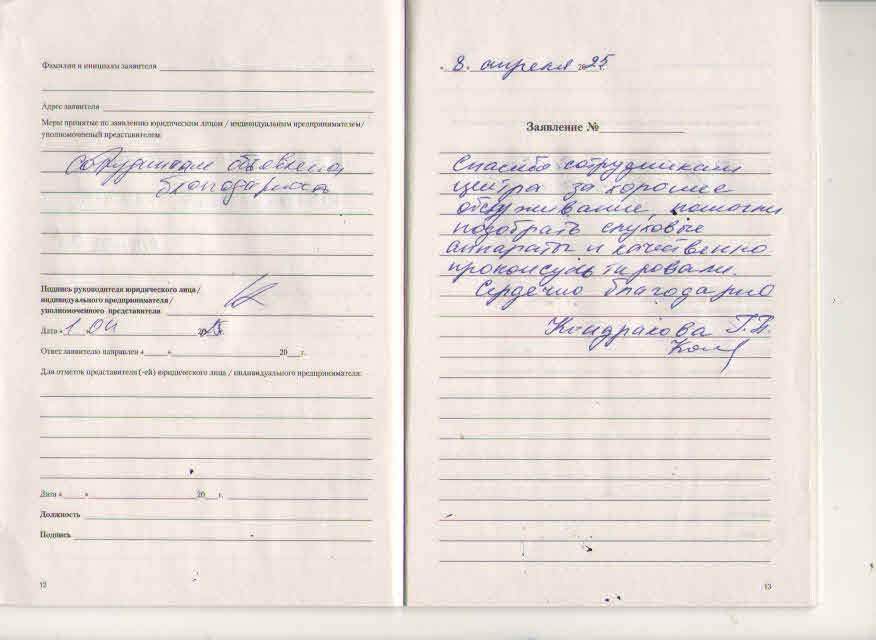 Фамилия и инициалы заявителя
Адрес заявителя
Меры принятые по заявлению юридическим лицом / индивидуальным предпринимателем/
уполномоченный представителем
сотрудникам объявлена
благодарность
Подпись руководителя юридического лица /
индивидуального предпринимателя /
уполномоченного представителя
Дата « 1 04 2025
Ответ заявителю направлен «____»____ 20___г.
Для отметок представителя (-ей) юридического лица / индивидуального предпринимателя:
Дата «____»____ 20___г.
Должность
Подпись
12
« 8. апреля 2025
Заявление №
Спасибо сотрудникам
центра за хорошее
обслуживание, помогли
подобрать слуховые
аппараты и качественно
проконсультировали.
Сердечно благодарю
Кондракова Г.П.
13